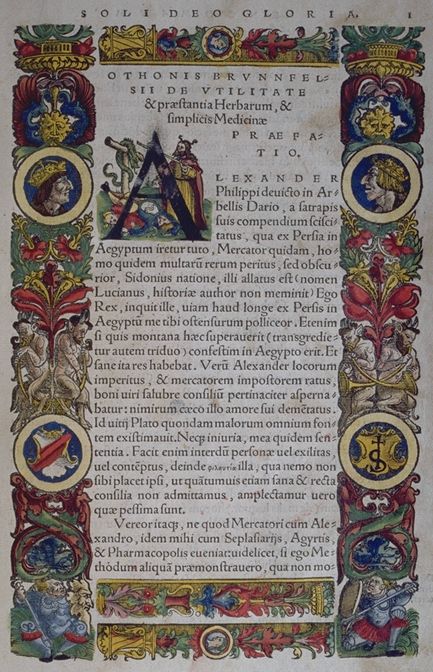 SOLI DEO GLORIA. 1
OTHONIS BRVNNFEL-
SII DE VTILITATE
& præstantia Herbarum, &
simplicis Medicinæ
PRÆFA-
TIO.
ALEXANDER
Philippi deuicto in Ar-
bellis Dario, a satrapis
suis compendium scisci-
tatus, qua ex Persia in
Aegyptum iretur tuto, Mercator quidam, ho-
mo quidem multarũ rerum peritus, sed obscu-
rior, Sidonius natione, illi allatus est (nomen
Lucianus, historiæ author non meminit) Ego
Rex, inquit ille, uiam haud longe ex Persis in
Aegyptũ me tibi ostensurum polliceor. Etenim
si quis montana hæc superauerit (transgredie-
tur autem triduo) confestim in Aegypto erit. Et
sane ita res habebat. Verũ Alexander locorum
imperitus, & mercatorem impostorem ratus,
boni uiri salubre consiliũ pertinaciter asperna-
batur: nimirum cæco illo amore sui demẽtatus.
Id uitij Plato quondam malorum omnium fon-
tem existimauit. Necp iniuria, mea quidem sen-
tentia. Facit enim interdũ personæ uel exilitas,
uel contẽptus, deinde φιλαυτία illa, qua nemo non
sibi placet ipsi, ut quãtumuis etiam sana & recta
consilia non admittamus, amplectamur uero
quæ pessima sunt.
Vereor itaq;, ne quod Mercatori cum Ale-
xandro, idem mihi cum Seplasiarijs, Agyrtis,
& Pharmacopolis eueniat: uidelicet, si ego Me-
thodum aliquã præmonstrauero, qua non mo-